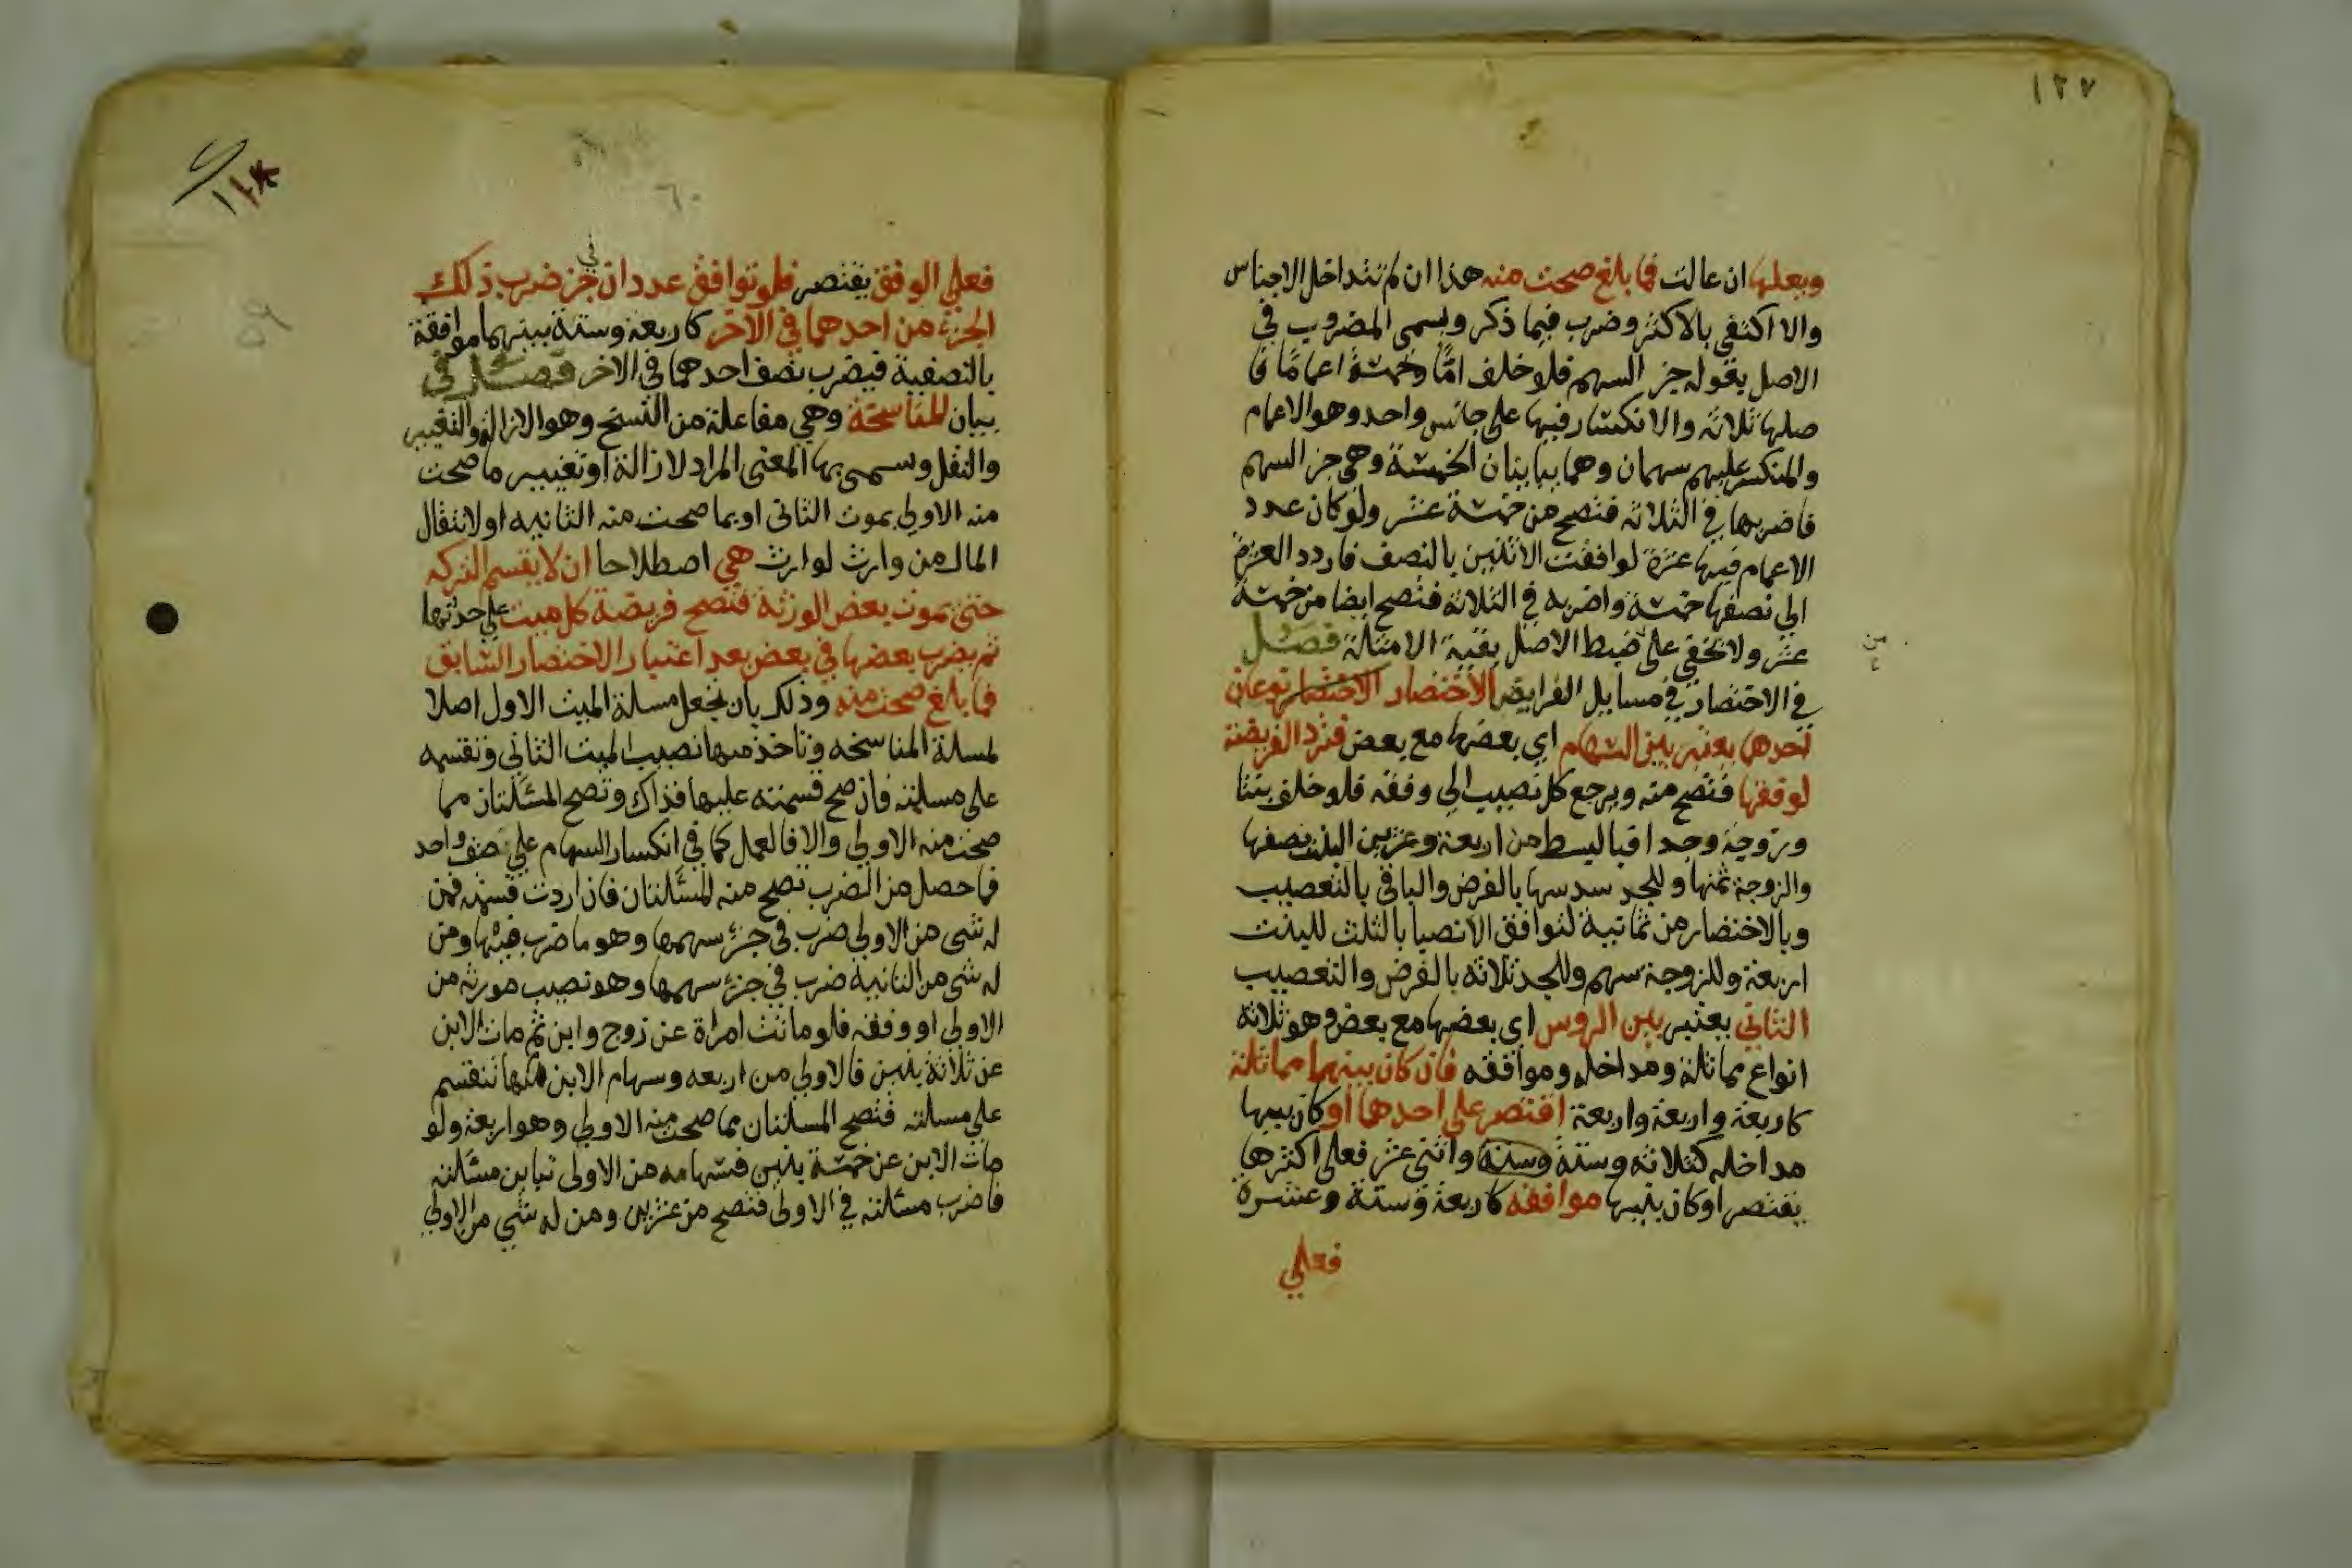 ١٢٧
وبعلها ان عالت فما بلغ صحت منه هذا ان لم تتداخل الاجناس
والا اكتفي بالاكثر وضرب فيما ذكر ويسمى المضروب في
الاصل بقوله جز السهم فلو خلف امًّا وخمسة اعمامًا فا
صلها ثلاثة والانكسار فيها على جانس واحد وهو الاعمام
والمنكسر عليهم سهمان وهما يباينان الخمسة وهي جز السهم
فاضربها في الثلاثة فتصح من خمسة عشر ولو كان عدد
الاعمام فيها عشرة لوافقت الاثنين بالنصف فاردد العشرة
الى نصفها خمسة واضربه في الثلاثة فتصح ايضا من خمسة
عشر ولا تخفى على ضبط الاصل بقية الامثلة فصل
في الاختصار في مسايل الفرايض الاختصار الاختصار نوعان
احدهما يعتبر بين السهام اي بعضها مع بعض فترد الفريضة
لوفقها فتصح منه ويرجع كل نصيب الى وفقه فلو خلف بنتا
وزوجة وجدا فبالبسط من اربعة وعشرين البنت نصفها
والزوجة ثمنها وللجد سدسها بالفرض والباقي بالتعصيب
وبالاختصار من ثمانية لتوافق الانصبا بالثلث للبنت
اربعة وللزوجة سهم وللجد ثلاثة بالفرض والتعصيب
الثاني يعتبر بين الروس اي بعضها مع بعض وهو ثلاثة
انواع مماثلة ومداخله وموافقه فان كان بينهما مماثلة
كاربعة واربعة واربعة اقتصر على احدها او كان بينها
مداخله كثلاثة وستة وستة واثني عشر فعلى اكثرها
يقتصر او كان بينها موافقه كاربعة وستة وعشرة
فعلي
فعلي الوفق يقتصر فلو توافق عددان في جز ضرب ذلك
الجزء من احدهما في الاخر كاربعة وستة بينهما موافقة
بالنصفية فيضرب نصف احدهما في الاخر فصل في
بيان المناسخة وهي مفاعلة من النسخ وهو الازالة والتغيير
والنقل وسمى بها المعنى المراد لازالة او تغيير ما صحت
منه الاولي بموت الثاني او بما صحت منه الثانيه او لانتقال
المال من وارث لوارث هي اصطلاحا ان لا يقسم التركه
حتى يموت بعض الورثة فتصح فريضة كل ميت على حدتها
ثم يضرب بعضها في بعض بعد اعتبار الاختصار السابق
فما بلغ صحت منه وذلك بان تجعل مسلة الميت الاول اصلا
لمسلة المناسخه وتاخذ منها نصيب الميت الثاني وتقسمه
على مسلته فان صح قسمته عليها فذاك وتصح المسئلتان مما
صحت منه الاولي والا فالعمل كما في انكسار السهام على صنف واحد
فما حصل من الضرب تصح منه المسئلتان فان اردت قسمته فمن
له شي من الاولي ضرب في جزء سهمها وهو ما ضرب فيها ومن
له شي من الثانية ضرب في جزء سهمها وهو نصيب مورثه من
الاولي او وفقه فلو ماتت امراة عن زوج وابن ثم مات الابن
عن ثلاثة بنين فالاولي من اربعه وسهام الابن منها تنقسم
علي مسلته فتصح المسلتان مما صحت منه الاولي وهو اربعة ولو
مات الابن عن خمسة بنين فسهامه من الاولى تباين مسئلته
فاضرب مسئلته في الاولى فتصح من عشرين ومن له شي من الاولي